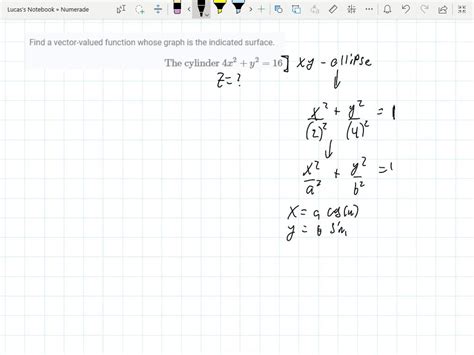 Lucas's Notebook » Numerade
Find a vector-valued function whose graph is the indicated surface.
The cylinder 4x² + y² = 16 ] xy - ellipse
z = ?
↓
x²/(2)² + y²/(4)² = 1
↓
x²/a² + y²/b² = 1
x = a cos(u)
y = b sin